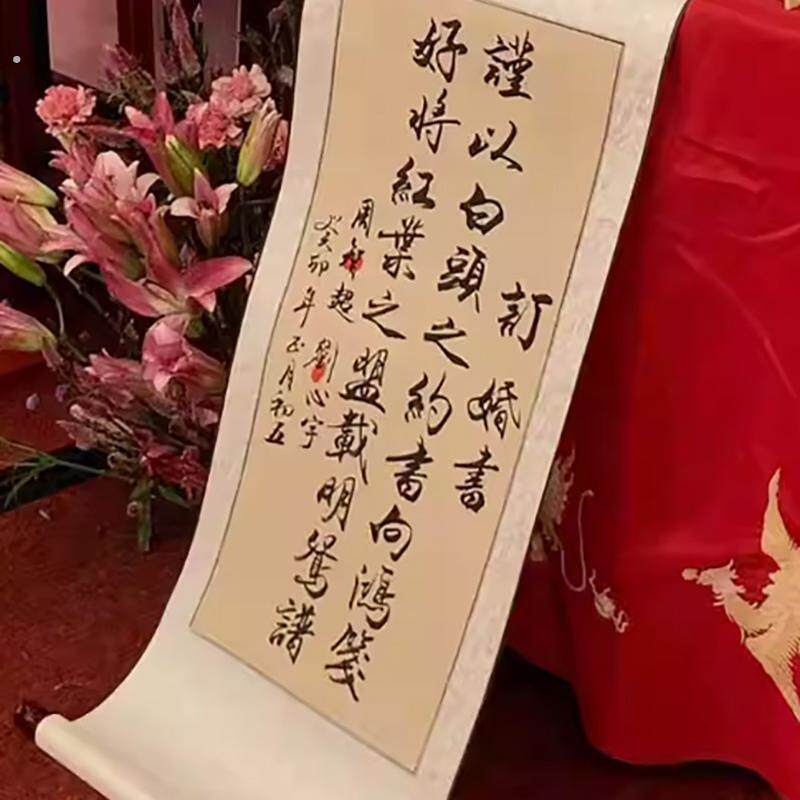 訂婚書
謹以白頭之約書向鴻箋
好將紅葉之盟載明鴛譜
周 起 劉心宇
癸卯年正月初五